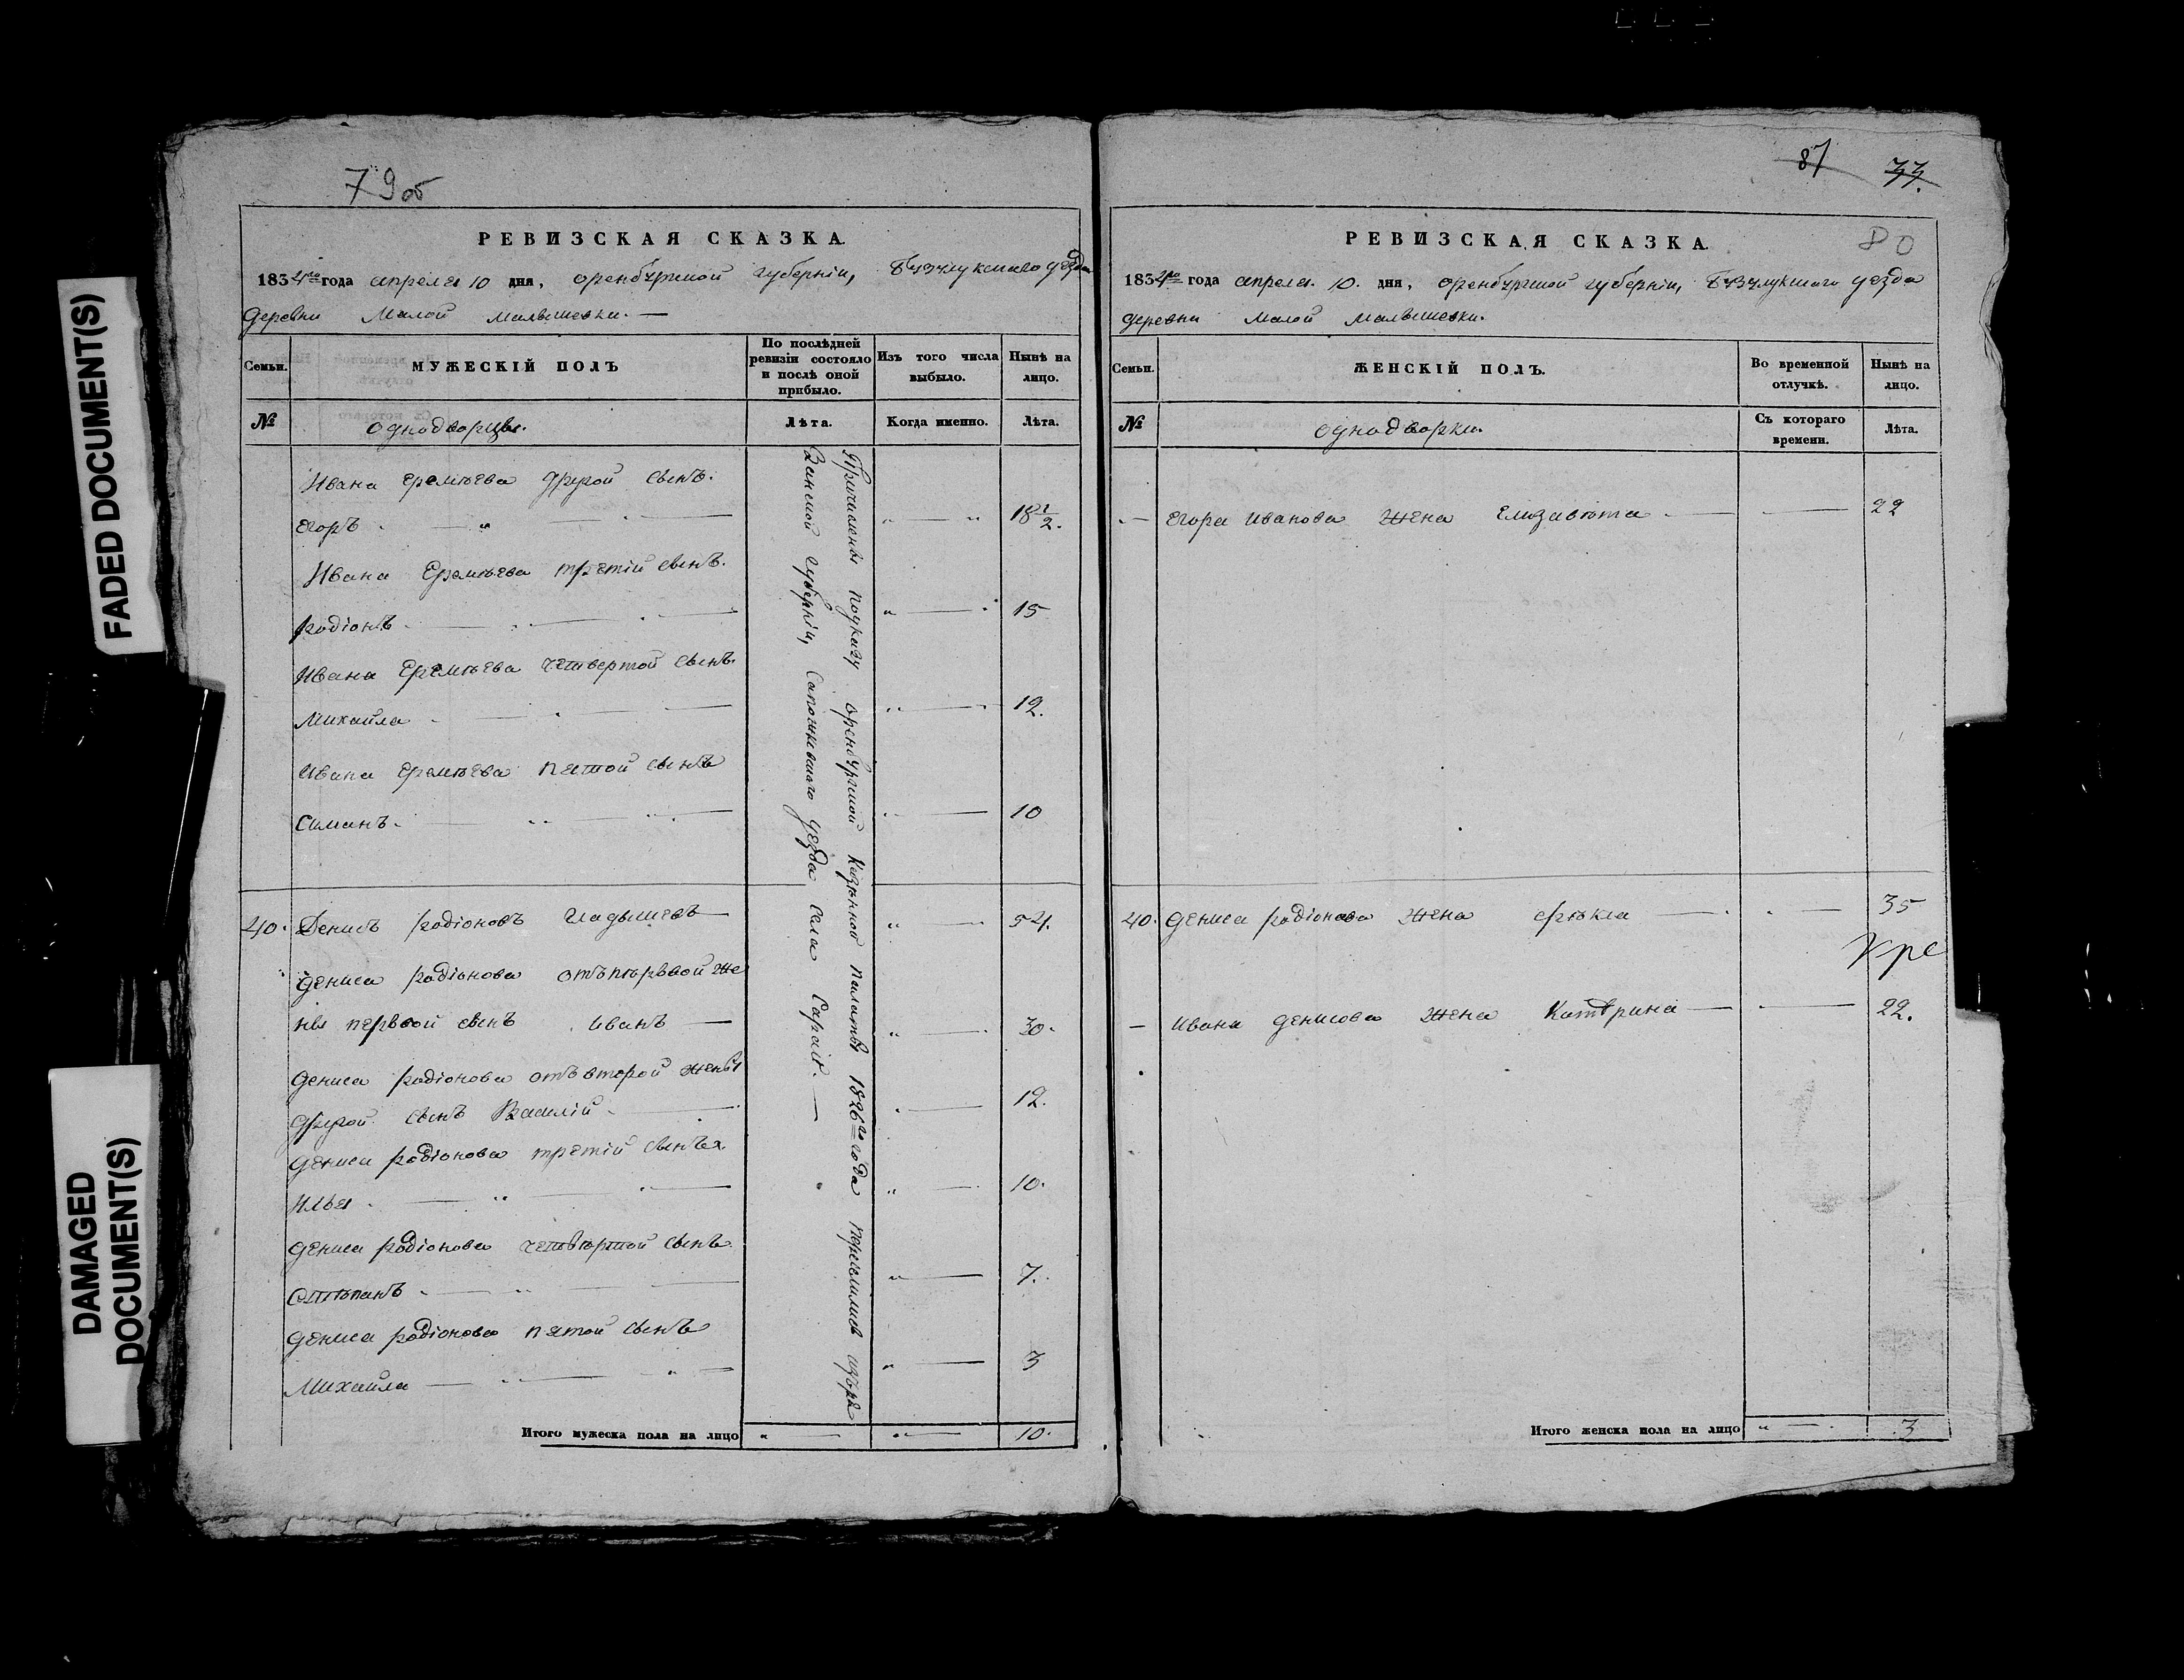 FADED DOCUMENT(S)
DAMAGED
DOCUMENT(S)
79об
РЕВИЗСКАЯ СКАЗКА.
1834го года апреля 10 дня, оренбургской губерніи, бузулукскаго уезда
деревни Малой малышевки. —
Семьи.
МУЖЕСКІЙ ПОЛЪ
По послѣдней
ревизіи состояло
и послѣ оной
прибыло.
Изъ того числа
выбыло.
Нынѣ на
лицо.
№
однодворцы.
Лѣта.
Когда именно.
Лѣта.
Ивана Еремѣева другой сынъ.
Егоръ 18 1/2.
Ивана Еремѣева третій сынъ.
родіонъ 15
Ивана Еремѣева четвертой сынъ.
Михайла 12.
Ивана Еремѣева пятой сынъ
Симанъ. 10
40. Денисъ родіоновъ Гладышевъ 54.
дениса родіонова отъпѣрвой же
ны первой сынъ иванъ — 30.
дениса родіонова отъвторой жены
другой сынъ Василій 12.
дениса родіонова третій сынъ
Илья 10.
дениса родіонова четвѣртой сынъ
Стѣпанъ 7.
дениса родіонова пятой сынъ
Михайла — 3
Причислены поуказу оренбургской Казенной палаты 1826го года
губерніи, Сапожковскаго уезда села Сараи. —
Итого мужеска пола на лицо 10.
87 33.
80
РЕВИЗСКАЯ СКАЗКА.
1834го года апреля. 10. дня, оренбургской губерніи, бузулукскаго уезда
деревни малой малышевки.
Семьи.
ЖЕНСКІЙ ПОЛЪ.
Во временной
отлучкѣ.
Нынѣ на
лицо.
№
однодворки.
Съ котораго
времени.
Лѣта.
— Егора иванова жена Елизавѣта 22
40. дениса родіонова жена 35
— ивана денисова жена Катѣрина — 22.
Итого женска пола на лицо 3